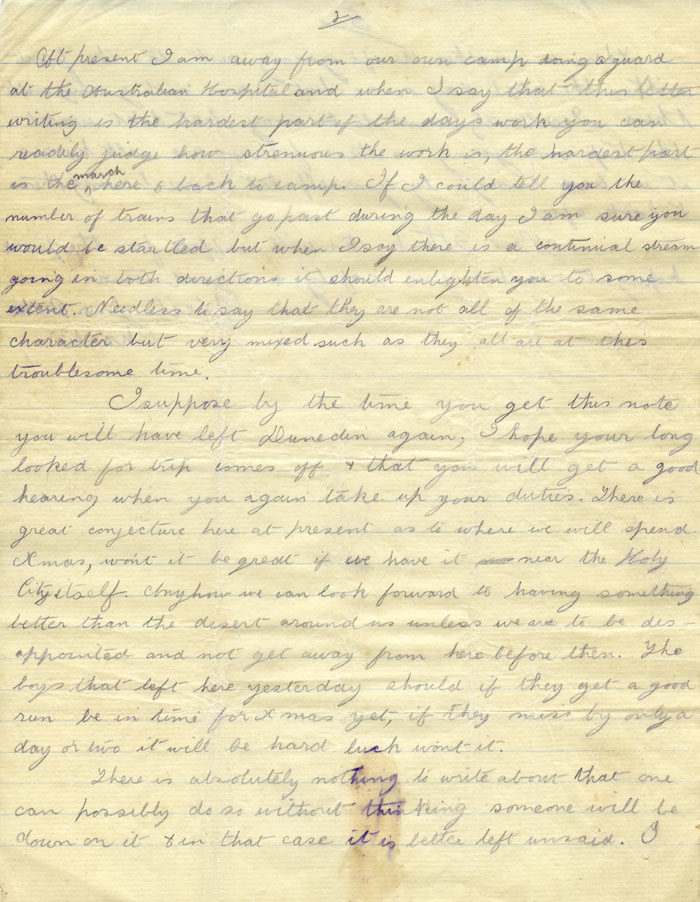 2
At present I am away from our own camp doing a guard
at the Australian Hospital and when I say that this letter
writing is the hardest part of the days work you can
readily judge how strenuous the work is, the hardest part
is the march here & back to camp. If I could tell you the
number of trains that go past during the day I am sure you
would be startled but when I say there is a continual stream
going in both directions it should enlighten you to some
extent. Needless to say that they are not all of the same
character but very mixed such as they all are at this
troublesome time.
I suppose by the time you get this note
you will have left Dunedin again, I hope your long
looked for trip comes off & that you will get a good
hearing when you again take up your duties. There is
great conjecture here at present as to where we will spend
Xmas, wont it be great if we have it near the Holy
City itself. Anyhow we can look forward to having something
better than the desert around us unless we are to be dis-
appointed and not get away from here before then. The
boys that left here yesterday should if they get a good
run be in time for Xmas yet, if they miss by only a
day or two it will be hard luck wont it.
There is absolutely nothing to write about that one
can possibly do so without thinking someone will be
down on it & in that case it is better left unsaid. I